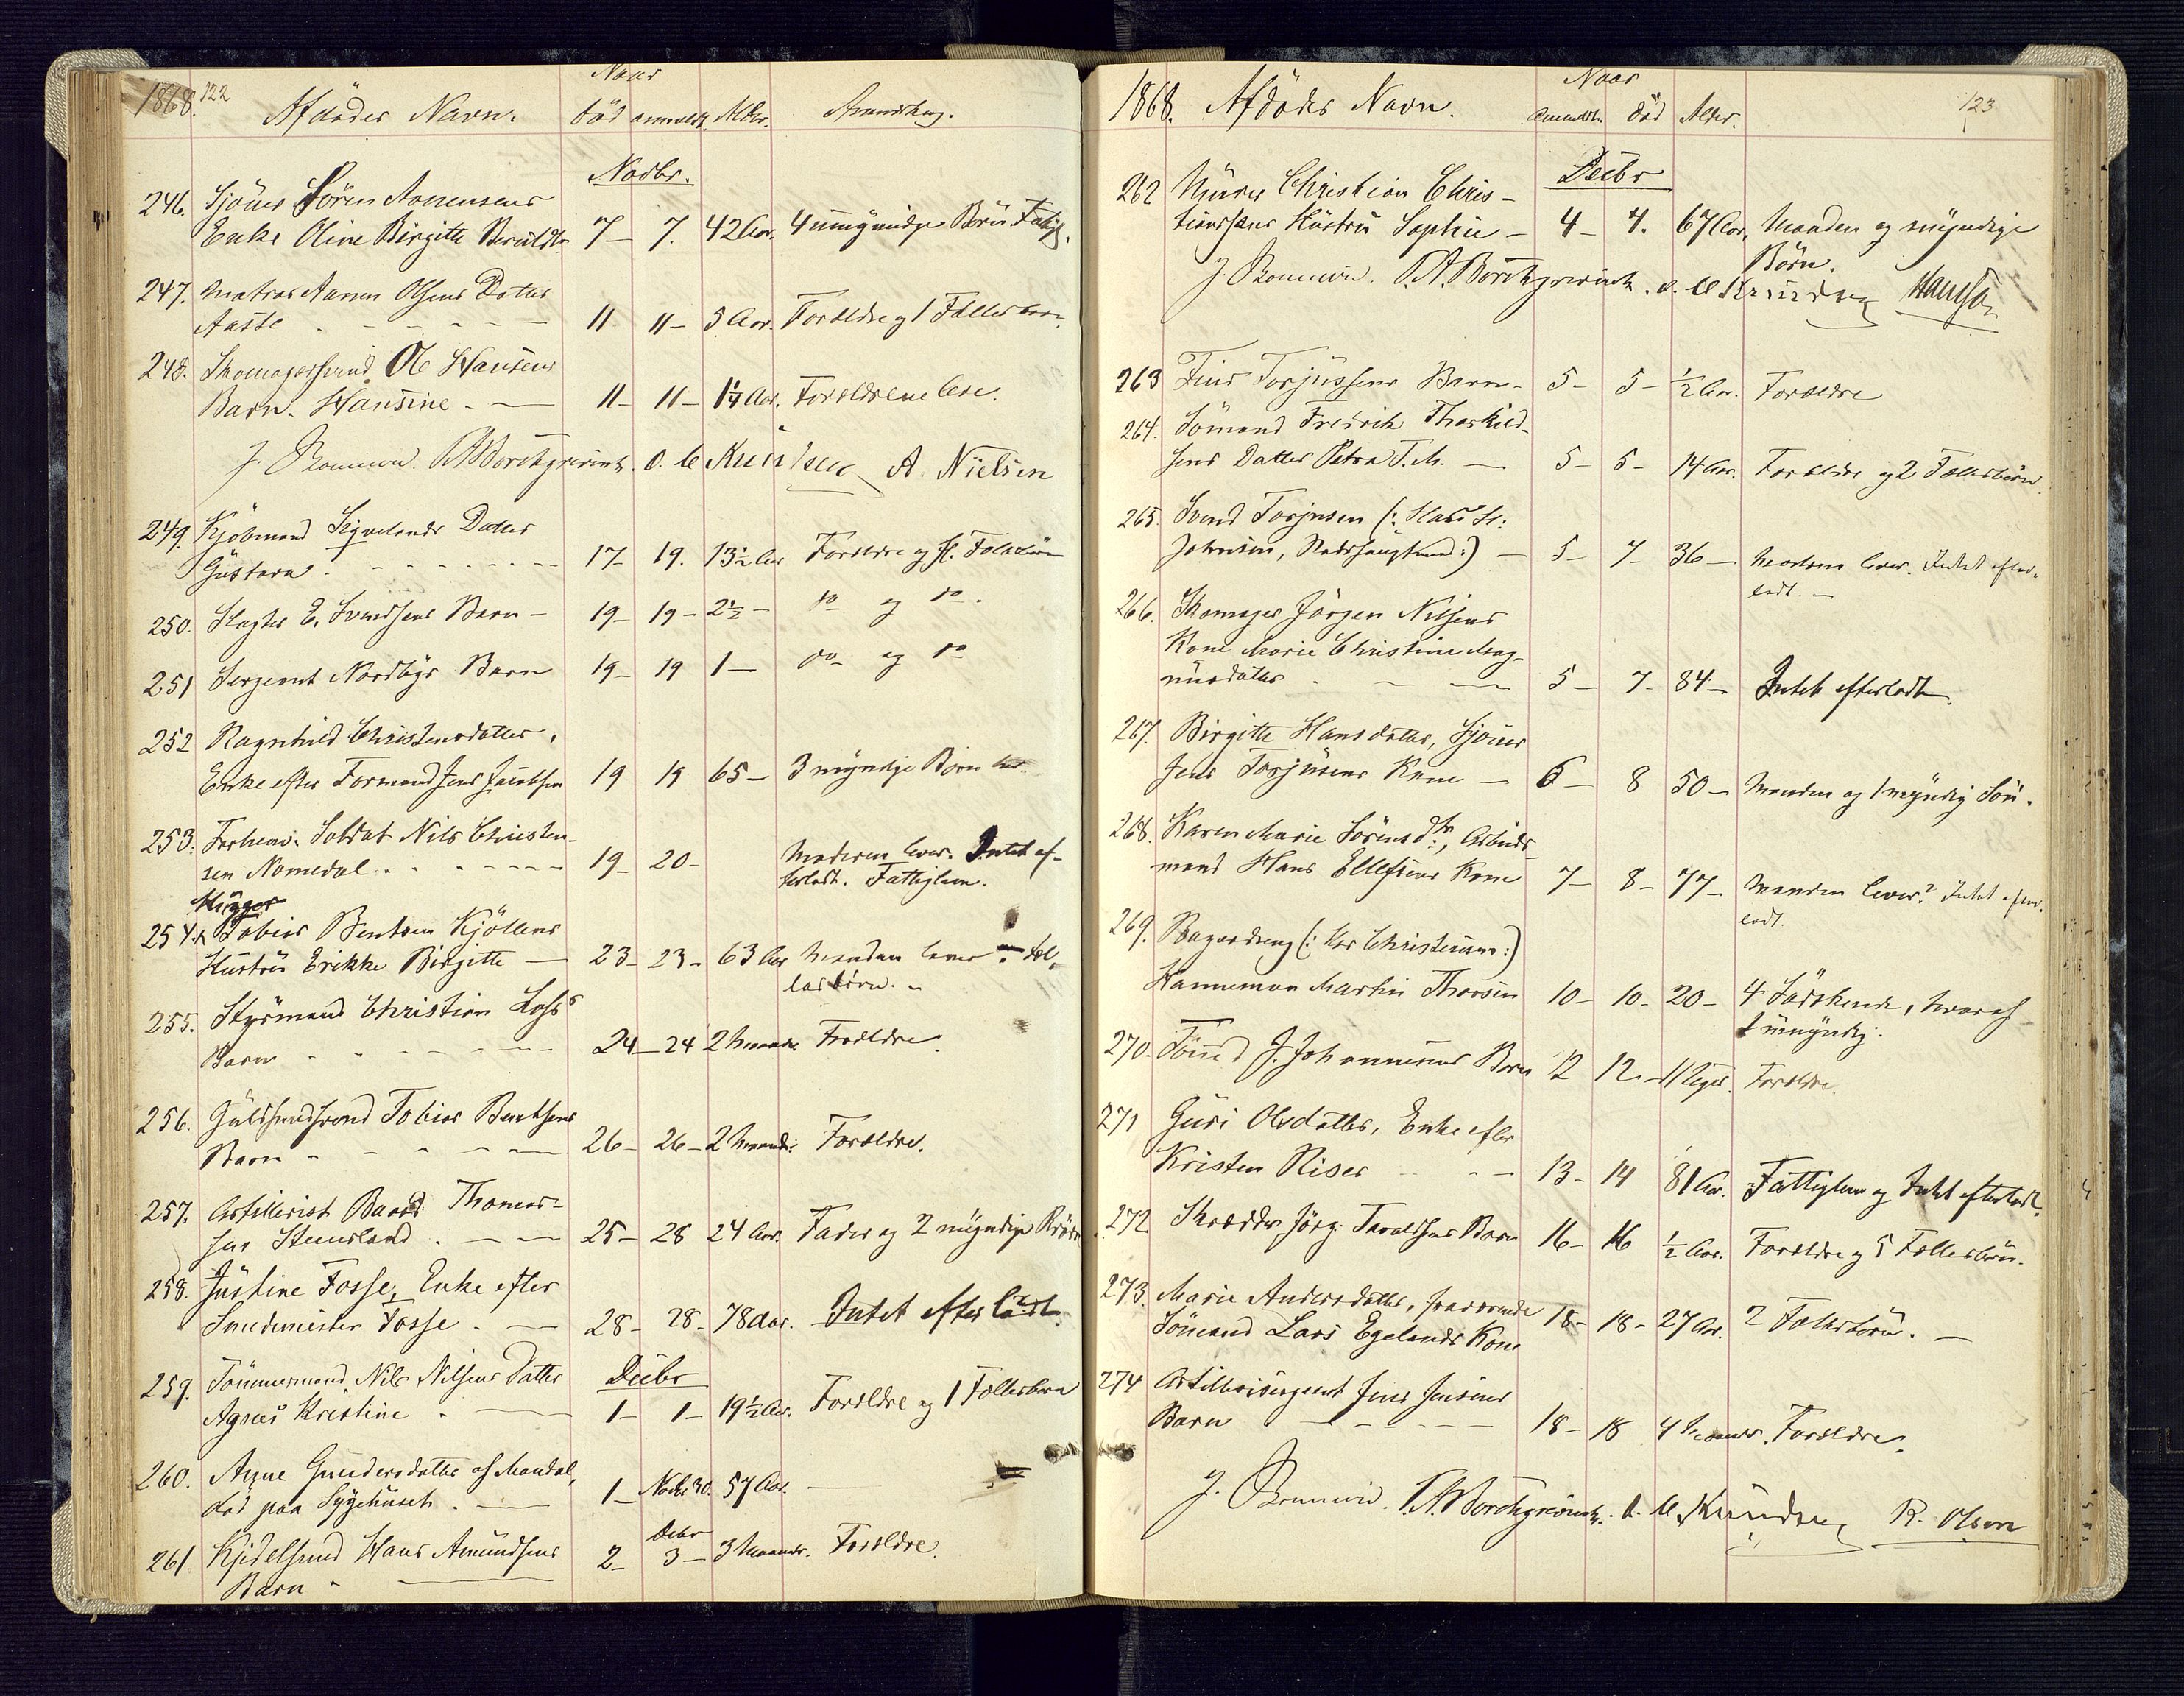 1868. 122
Afdödes Navn.
Naar
död anmeldt. Alder.
Anmærkng.
Novbr.
246. Sjöuer Sören Aanensens
Enke Oline Birgitte 7 - 7. 42 Aar. 4 umyndige Börn Fattigl.
247. Matros Aanen Olsens Datter
Aasse 11 11 - 5 Aar. Forældre og 1 Fællesbarn.
248. Skomagersvend Ole Hansens
Barn. Hansine - 11 - 11 - 1¼ Aar. Forældrene leve.
J. Borchgrevink. O. C. Knudsen A. Nielsen
249. Kjöbmand Sigvelands Datter
Gustava. 17 - 19. 13½ Aar Forældre og fl. Fællesbörn
250. Slagter E. Svendsens Barn - 19 - 19 - 2½ - do og do.
251 Sergeant Nordbys Barn 19 - 19 1 - do og do
252 Ragnhild Christensdatter,
Enke efter Formand Jens Jacobsen 19 19 65 - 3 myndige Börn
253. Forhenv. Soldat Nils Christen-
sen Nomedal 19 - 20 - Moderen lever. Intet ef-
terladt. Fattiglem.
254. Tobias Bentsen Kjöllens
Hustru Erikke Birgitte - 23 - 23 - 63 Aar Manden lever. Fæl-
lesbörn. -
255. Styrmand Christian Loss's
Barn - 24 - 24 2 Maander. Forældre.
256. Guldsmedsvend Tobias Bentsens
Barn - 26 - 26 - 2 Maander. Forældre.
257. Artillerist Baard Thomas-
sen 25 - 28 24 Aar. Fader og 2 myndige
258. Justine Fosse, Enke efter
Smedmester Fosse. - 28 - 28 - 78 Aar. Intet efterladt.
259. Tömmermand Nils Nilsens Datter
Decbr
Agnes Kristine - 1 - 1 - 19½ Aar. Forældre og 1 Fællesbarn
260. Anne Gundersdatter af Mandal,
död paa Sygehuset. - 1 - Novbr 30. 57 Aar. -
Decbr
261 Kjedelsmed Hans Amundsens 2 - 3 - 3 Maander. Forældre.
Barn -
1868. Afdödes Navn.
Naar
anmeldt. död Alder.
123
Decbr
262 Murer Christian Chris-
tianssens Hustru Sophie - 4 - 4. 67 Aar. Manden og myndige
Börn.
J. Borchgrevink. O. C. Knudsen Hansen
263 Finr Torjussens Barn - 5 - 5 - ½ Aar. Forældre
264. Sömand Fredrik Thorkild-
sens Datter Petra T. M. - 5 - 5 - 14 Aar. Forældre og 2 Fællesbörn.
265. Svend Torjusen (: Hos H:
Johnsen, :) - 5 - 7 - 36 - Moderen lever. Intet efter-
ladt. -
266. Skomager Jörgen Nilsens
Kone Marie Christine Mag-
nusdatter - 5 - 7 - 84 - Intet efterladt.
267. Birgitte Hansdatter, Sjöuer
Jens Torjusens Kone - 6 - 8 50 - Manden og 1 myndig Sön.
268. Karen Marie Sörensdtr., Arbeids-
mand Hans Ellefsens Kone 7 - 8 - 77 - Manden lever? Intet efter-
ladt.
269. Bagerdreng (: hos Christensen:)
Hanneman Martin Thorsen 10 - 10 - 20 - 4 Södskende, hvoraf
1 umyndig.
270. J. Johannesens Barn 12 12 - 11 Dage. Forældre.
271 Guri Olsdatter, Enke efter
Kristen Riser - 13 - 14 81 Aar. Fattiglem og Intet efterladt.
272 Skrædder Jörg. Taraldsens Barn 16 - 16 ½ Aar. Forældre og 5 Fællesbörn.
273. Marie Andersdatter, fraværende
Sömand Lars Egelands Kone 18 - 18 - 27 Aar. 2 Fællesbörn. -
274 Artillerisergeant Jens Jensens
Barn - 18 - 18 4 Maander. Forældre.
J. Borchgrevink. O. C. Knudsen R. Olsen